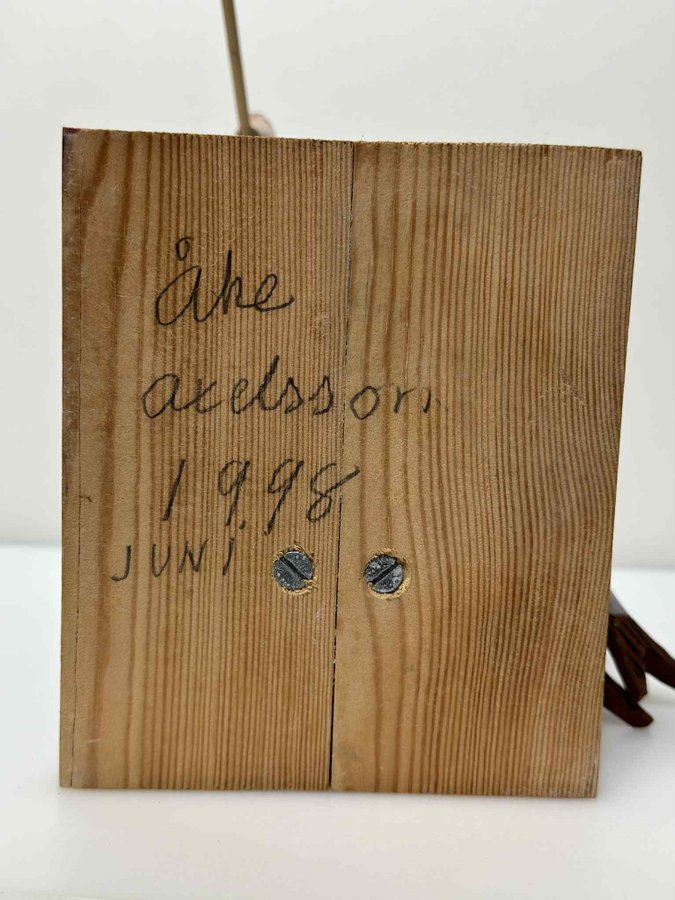 åke
axelsson
1998
JUNI